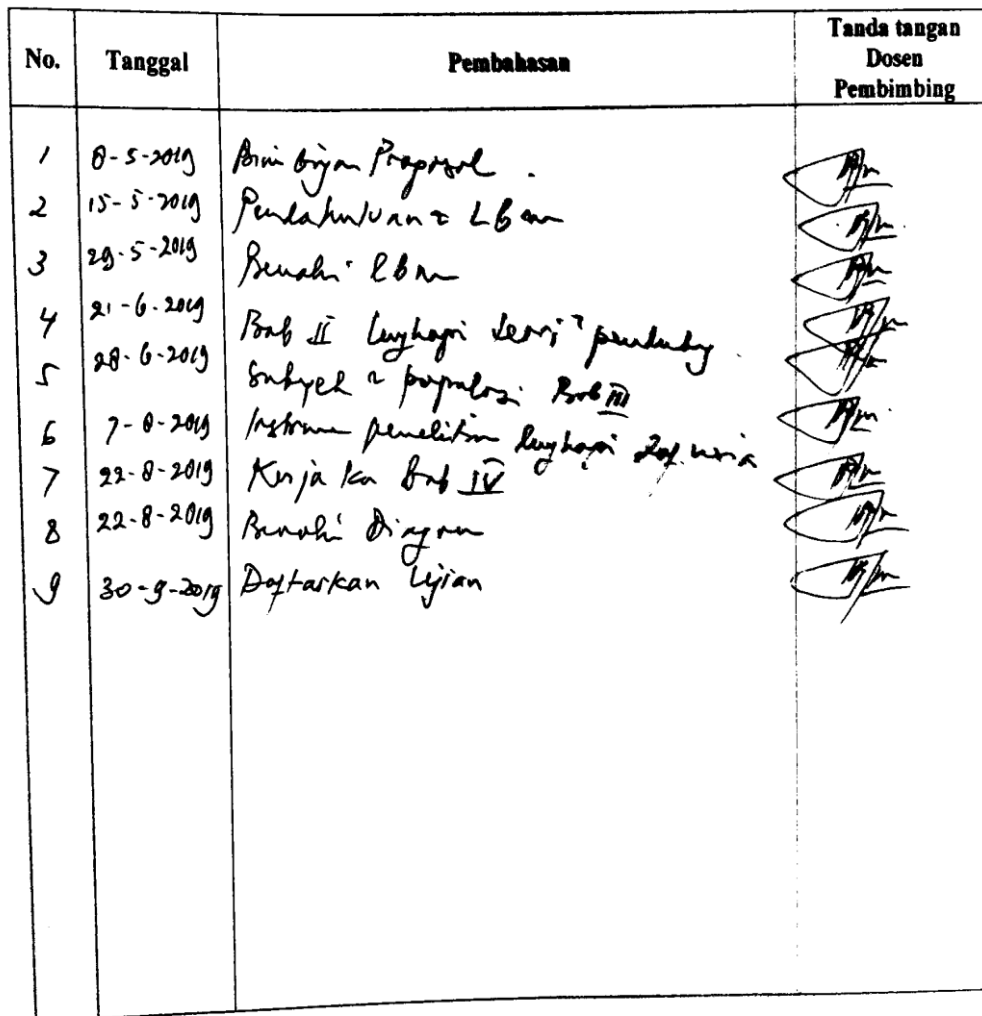 No. Tanggal Pembahasan Tanda tangan Dosen Pembimbing
1 8-5-2019 Bimbingan Proposal.
2 15-5-2019 Pendahuluan & LBM
3 29-5-2019 Benahi LBM
4 21-6-2019 Bab II lengkapi teori² pendukung.
5 28-6-2019 Subyek & populasi Bab III
6 7-8-2019 Instrumen penelitian lengkapi
7 22-8-2019 Kerjakan Bab IV
8 22-8-2019 Benahi Diagram
9 30-9-2019 Daftarkan Ujian